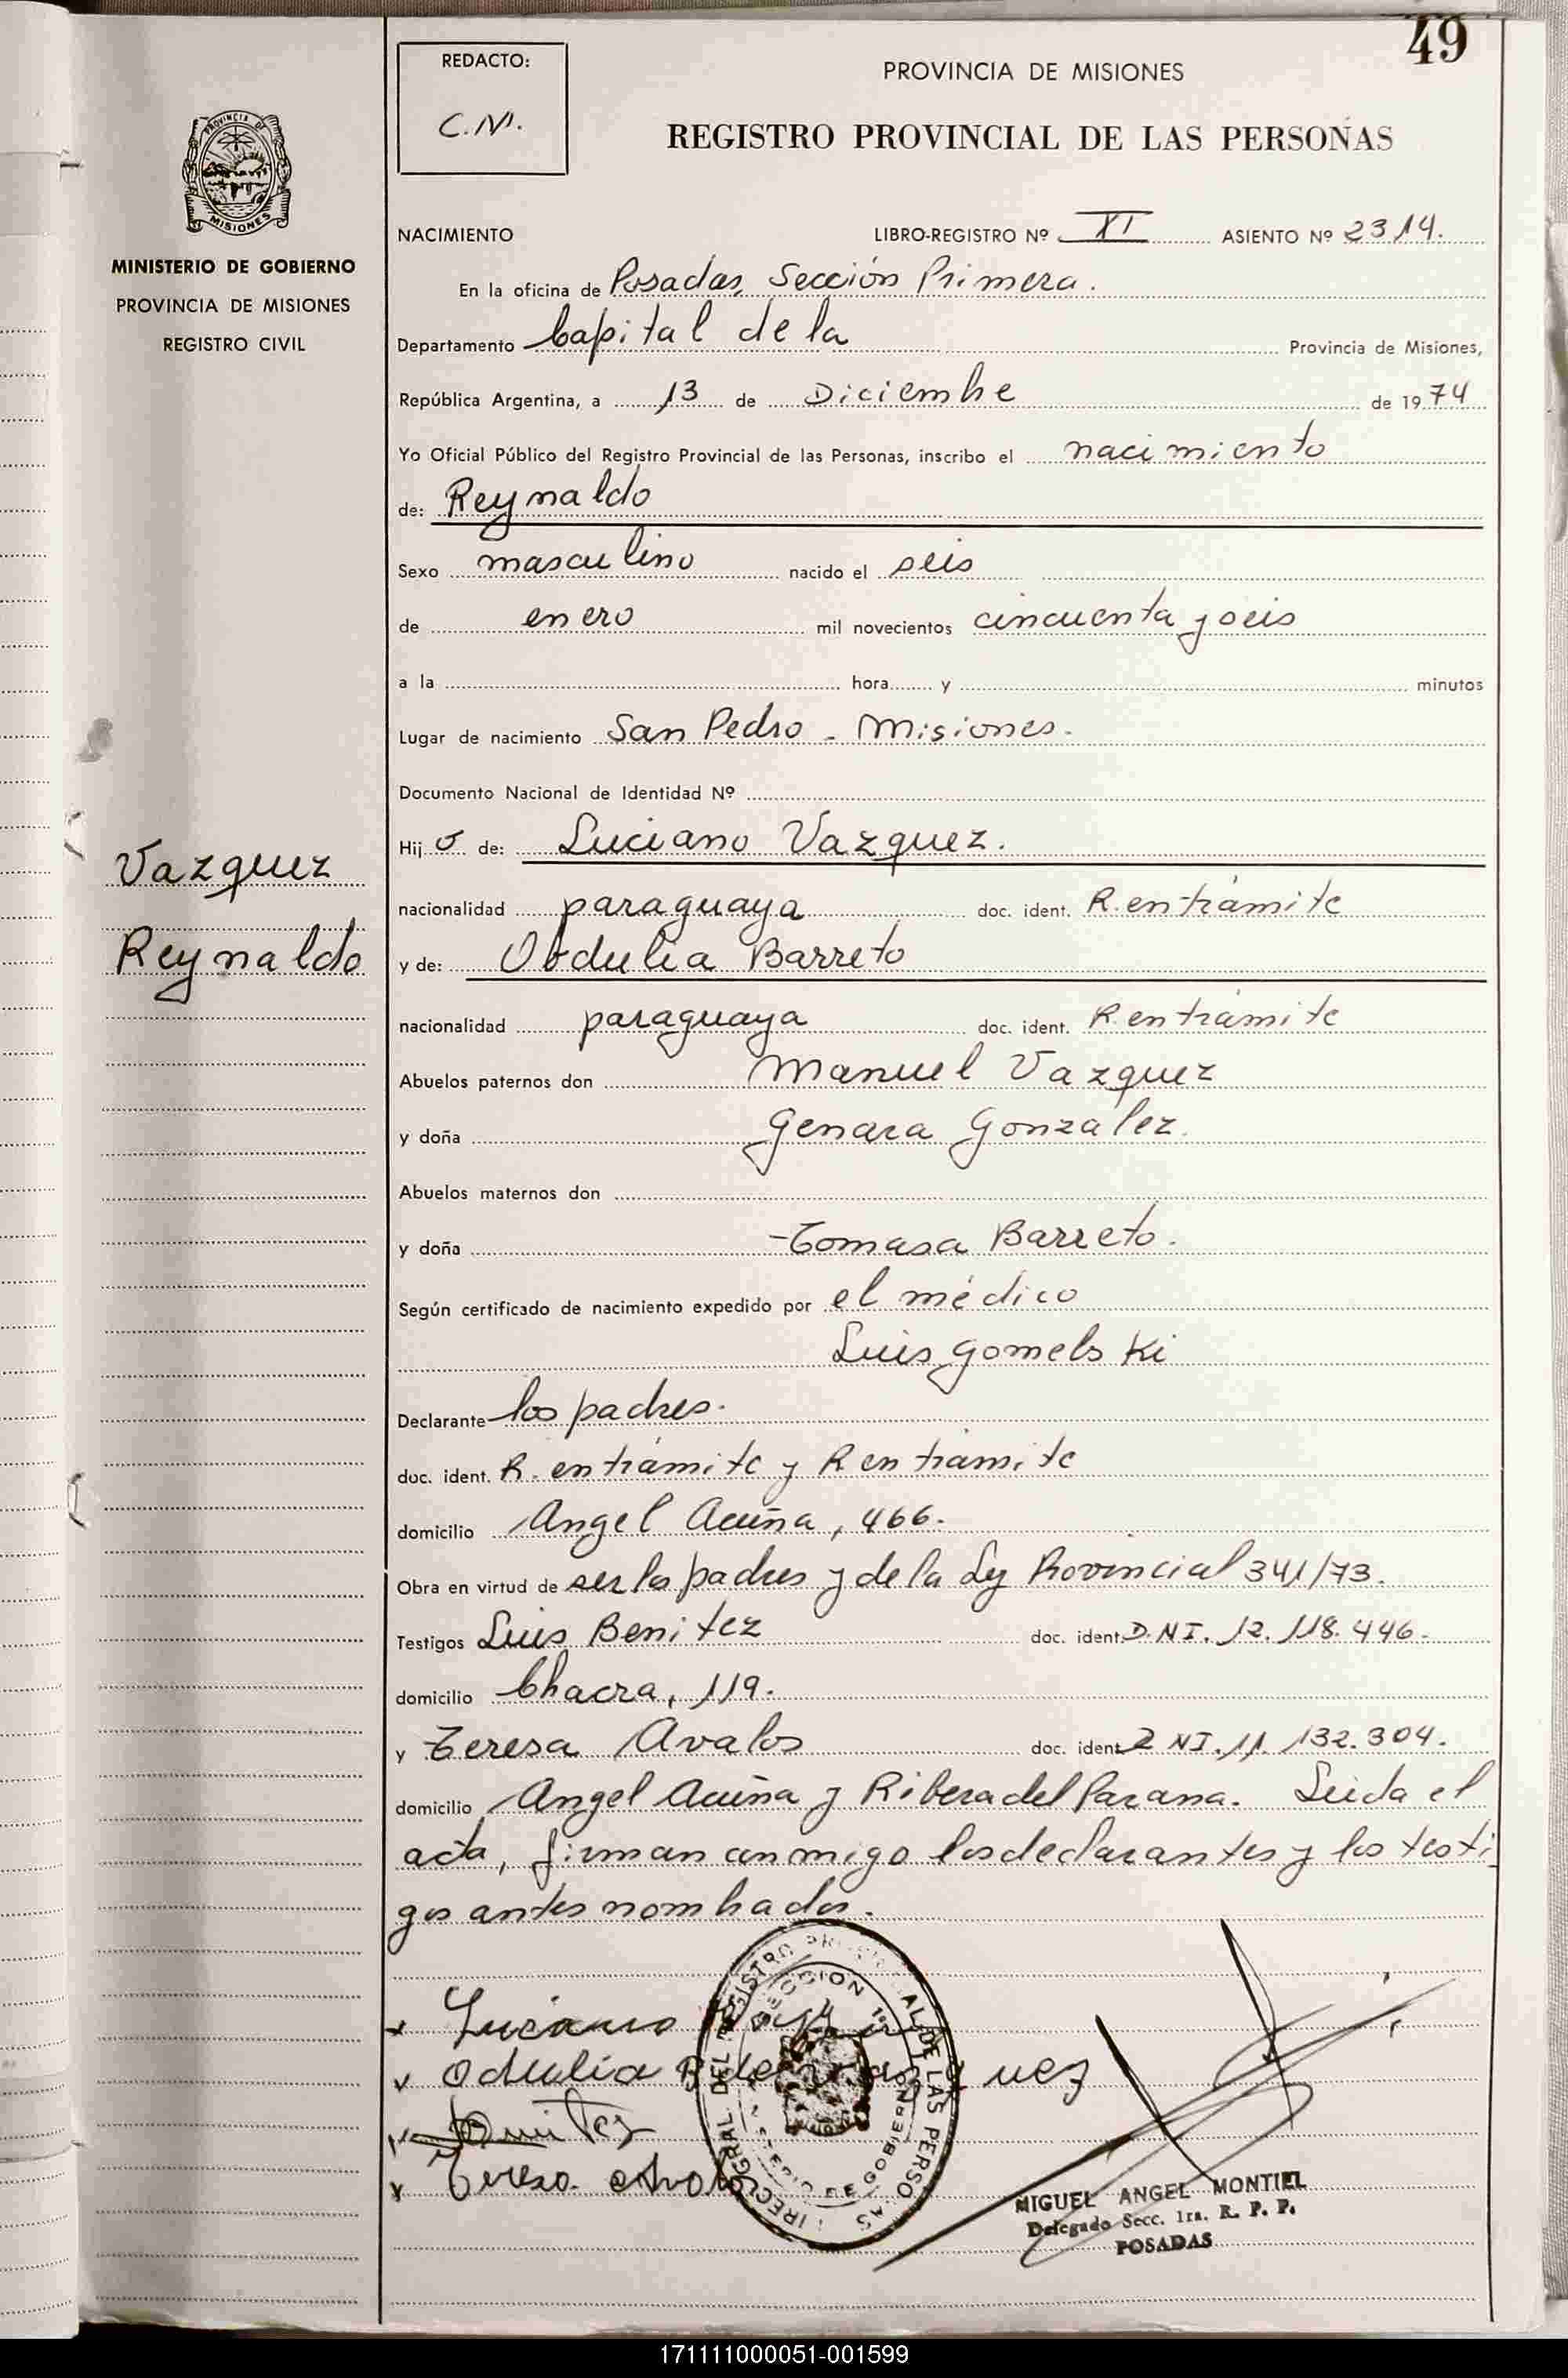 49
REDACTO:
C.M.
PROVINCIA DE MISIONES
REGISTRO PROVINCIAL DE LAS PERSONAS
PROVINCIA DE
MISIONES
MINISTERIO DE GOBIERNO
PROVINCIA DE MISIONES
REGISTRO CIVIL
NACIMIENTO LIBRO-REGISTRO Nº XI ASIENTO Nº 2314.
En la oficina de Posadas, Sección Primera.
Departamento Capital de la Provincia de Misiones,
República Argentina, a 13 de Diciembre de 1974
Yo Oficial Público del Registro Provincial de las Personas, inscribo el nacimiento
de: Reynaldo
Sexo masculino nacido el seis
de enero mil novecientos cincuenta y seis
a la hora y minutos
Lugar de nacimiento San Pedro - Misiones.
Documento Nacional de Identidad Nº
Hij o de: Luciano Vazquez.
Vazquez
Reynaldo
nacionalidad paraguaya doc. ident. R. en trámite
y de: Obdulia Barreto
nacionalidad paraguaya doc. ident. R. en trámite
Abuelos paternos don Manuel Vazquez
y doña Genara González.
Abuelos maternos don
y doña Tomasa Barreto.
Según certificado de nacimiento expedido por el médico
Luis Gomelski
Declarante los padres.
doc. ident. R. en trámite y R en trámite
domicilio Angel Acuña, 466.
Obra en virtud de ser los padres y de la Ley Provincial 341/73.
Testigos Luis Benitez doc. ident. D.NI. 12.118.446.
domicilio Chacra, 119.
y Teresa Avalos doc. ident. D NI. 11.132.304.
domicilio Angel Acuña y Ribera del Parana. Leida el
acta, firman conmigo los declarantes y los testi
gos antes nombrados.
Luciano
Odulia B de
Teresa Avalo
SECCION 1ra
DE GOBIERNO
MIGUEL ANGEL MONTIEL
Delegado Secc. 1ra. R. P. P.
POSADAS
171111000051-001599